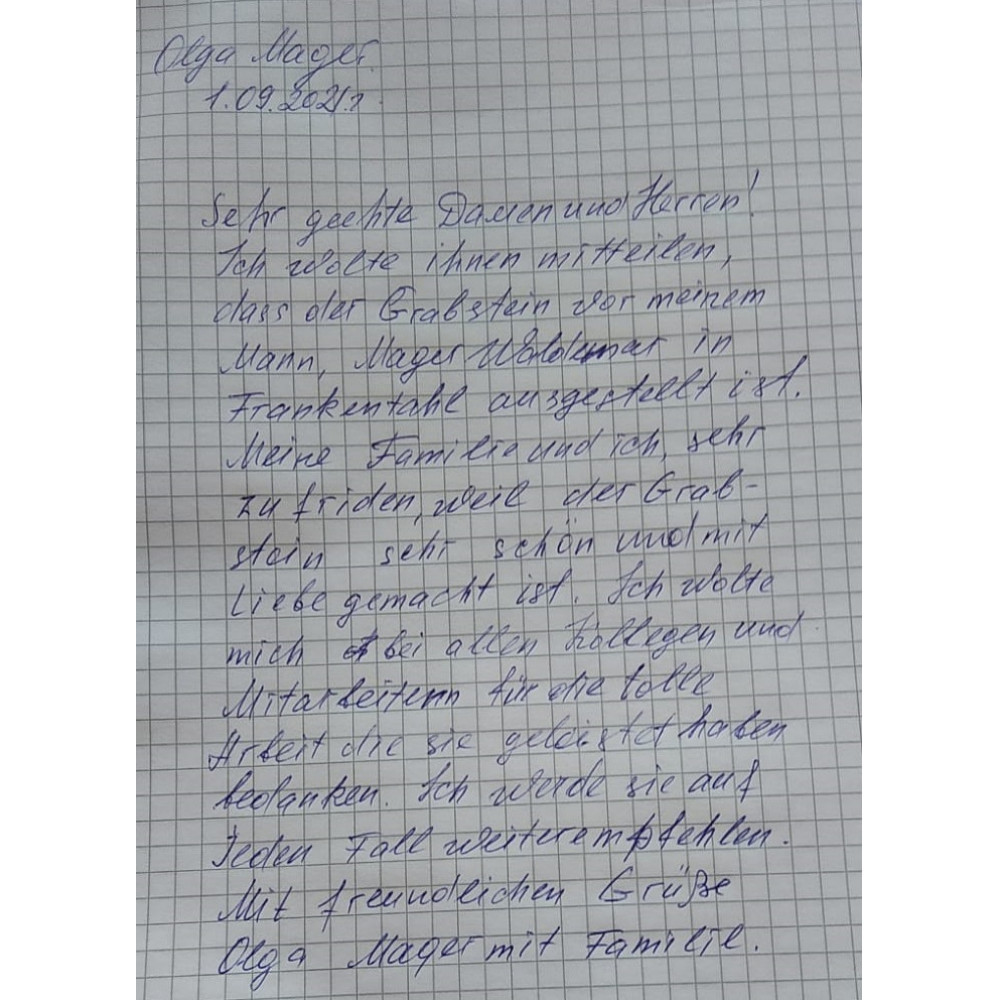 Olga Mager.
1.09.2021г.
Sehr geehte Damen und Herren!
Ich wolte ihnen mitteilen,
dass der Grabstein vor meinem
Mann, Mager Woldemar in
Frankentahl ausgestellt ist.
Meine Familie und ich, sehr
zufriden, weil der Grab-
stein sehr schön und mit
Liebe gemacht ist. Ich wolte
mich bei allen Kollegen und
Mitarbeitern für die tolle
Arbeit die sie geleistet haben
bedanken. Ich werde sie auf
Jeden Fall weiterempfehlen.
Mit freundlichen Grüße
Olga Mager mit Familie.